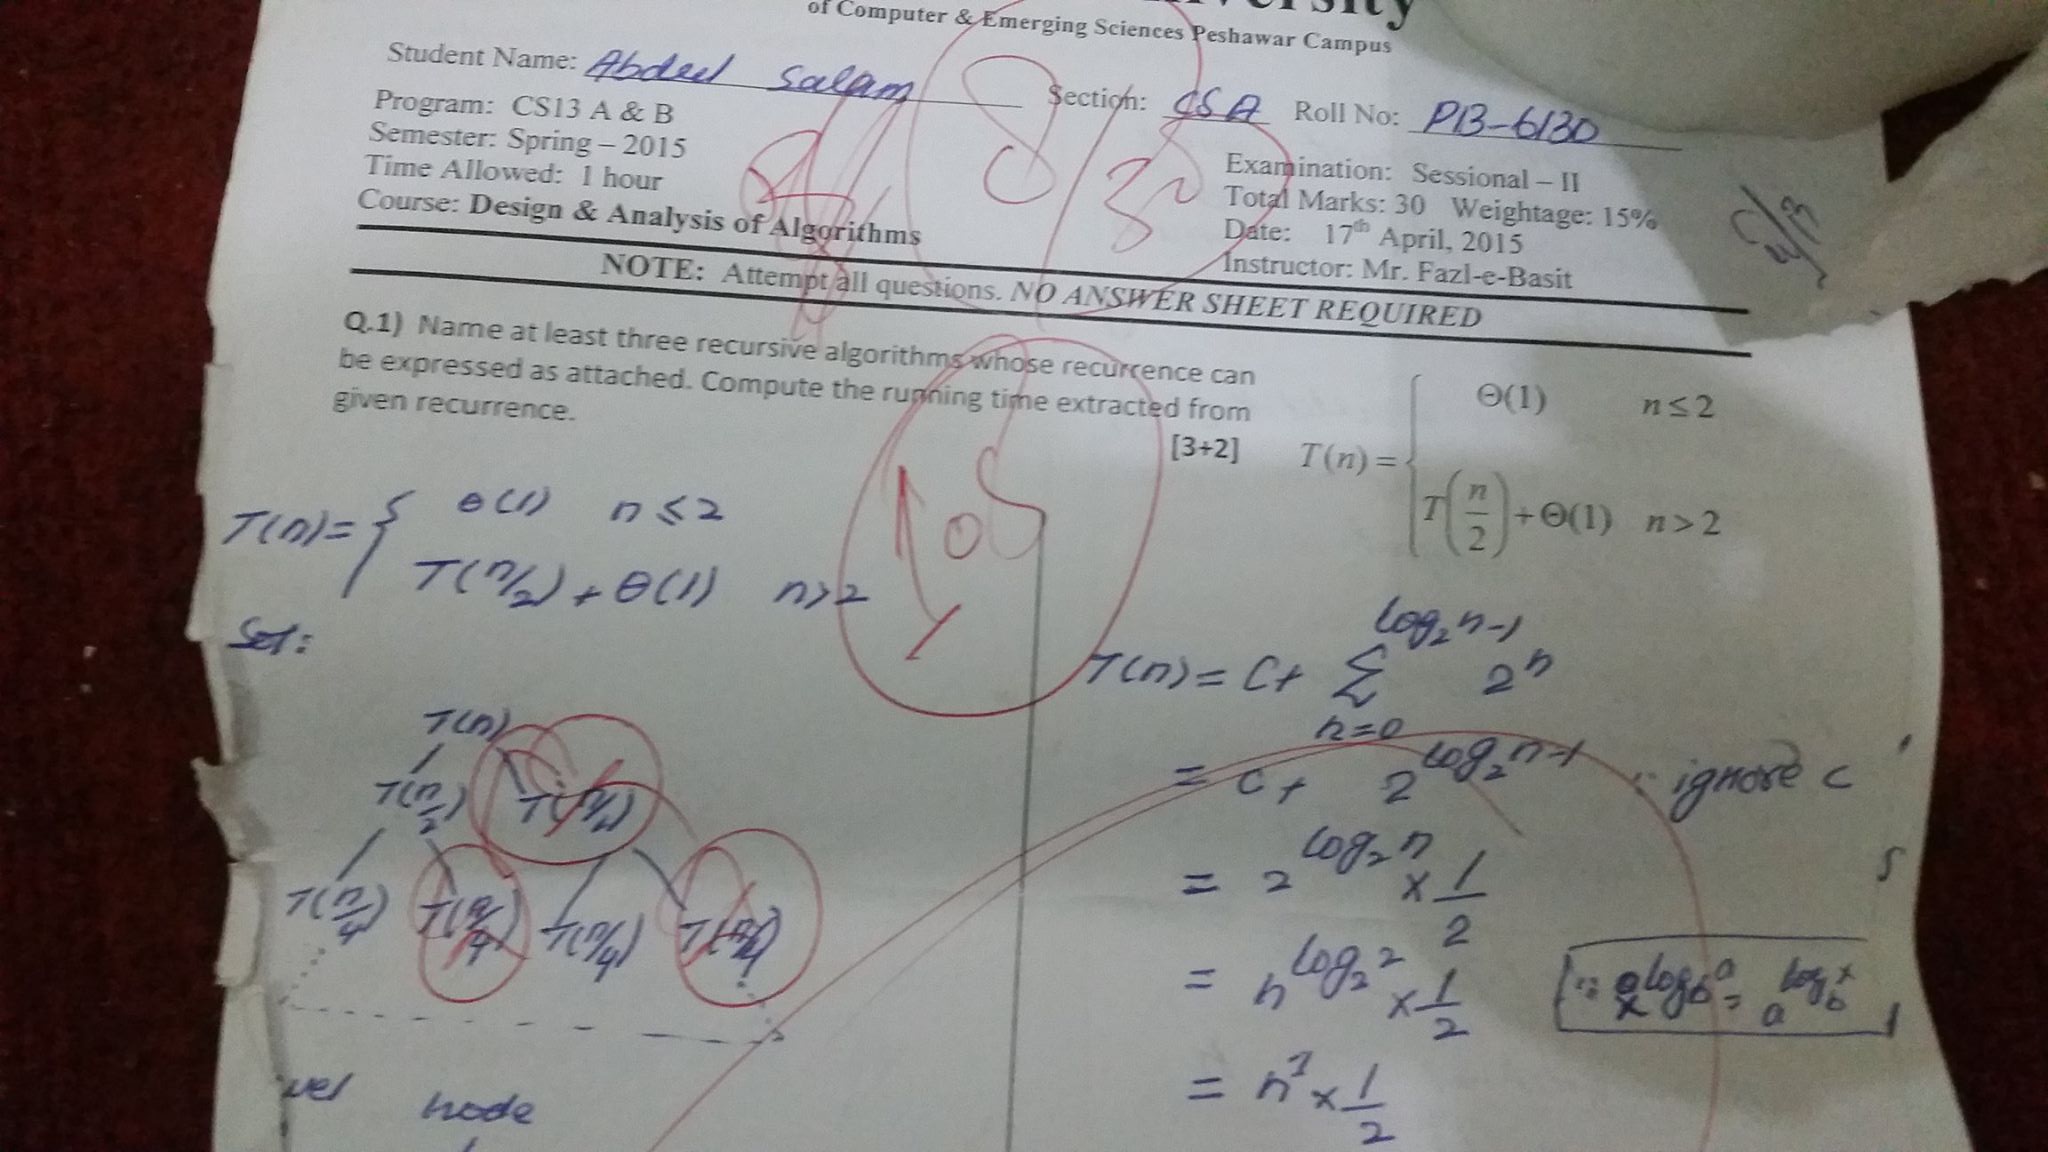 of Computer & Emerging Sciences Peshawar Campus
Student Name: Abdeel Salam Section: CSA Roll No: PB-6130
Program: CS13 A & B
Semester: Spring – 2015
Time Allowed: 1 hour
Course: Design & Analysis of Algorithms
Examination: Sessional – II
Total Marks: 30 Weightage: 15%
Date: 17th April, 2015
Instructor: Mr. Fazl-e-Basit
NOTE: Attempt all questions. NO ANSWER SHEET REQUIRED
Q.1) Name at least three recursive algorithms whose recurrence can
be expressed as attached. Compute the running time extracted from
given recurrence.
[3+2]
T(n) = { Θ(1) n ≤ 2
T(n/2) + Θ(1) n > 2
T(n) = { θ(1) n ≤ 2
T(n/2) + θ(1) n > 2
Sol:
T(n)
T(n/2) T(n/2)
T(n/4) T(n/4) T(n/4) T(n/4)
node
T(n) = C + Σ_{n=0}^{log₂n-1} 2^n
= C + 2^{log₂n-1} ∵ ignore c
= 2^{log₂n} × 1/2
= n^{log₂2} × 1/2
∵ x^{log_b a} = a^{log_b x}
= n^1 × 1/2